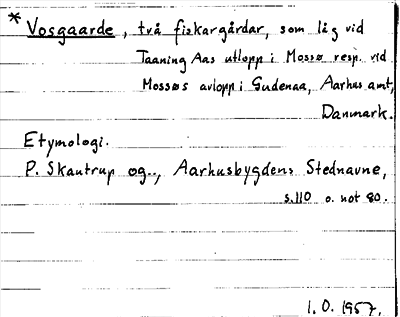 * Vosgaarde, två fiskargårdar, som låg vid
Taaning Aas utlopp i Mossø resp. vid
Mossøs avlopp i Gudenaa, Aarhus amt,
Danmark.
Etymologi.
P. Skautrup og.., Aarhusbygdens Stednavne,
s. 110 o. not 80.
1.O. 1957.